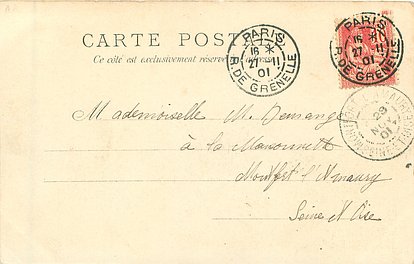 CARTE POSTALE
Ce côté est exclusivement réservé à l'adresse
PARIS
16 *
27 11
01
R. DE GRENELLE
PARIS
16 *
27 11
01
R. DE GRENELLE
28
NOV
01
Mademoiselle M. Demange
à la
Montfort l'Amaury
Seine et Oise